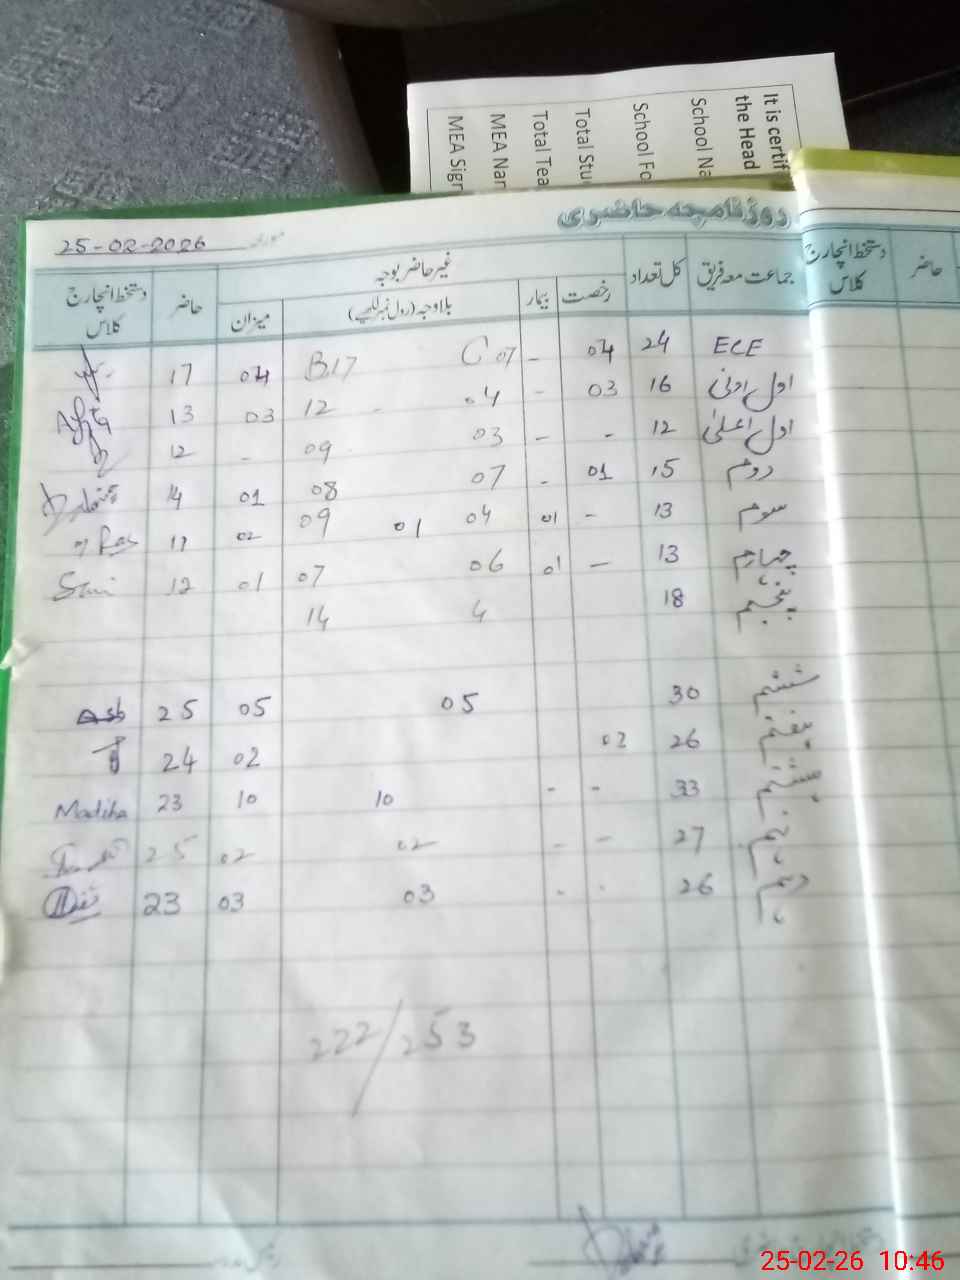 It is certif
the Head
School Na
School Fo
Total Stu
Total Tea
MEA Nar
MEA Sigr
روزنامچہ حاضری
مورخہ 25-02-2026
جماعت معہ فریق کل تعداد غیر حاضر بوجہ حاضر دستخط انچارج کلاس
رخصت بیمار بلاوجہ (رول نمبر لکھیے) میزان
حاضر دستخط انچارج کلاس
ECE 24 04 - C 07 B17 04 17
اول ادنیٰ 16 03 - 04 12 03 13
اول اعلیٰ 12 - - 03 09 - 12
دوم 15 01 - 07 08 01 14
سوم 13 - 01 04 01 09 02 11
چہارم 13 - 01 06 07 01 12
پنجم 18 4 14
ششم 30 05 05 25
ہفتم 26 02 02 24
ہشتم 33 - - 10 10 23 Madiha
نہم 27 - - 02 02 25
دہم 26 - - 03 03 23
222/253
25-02-26 10:46